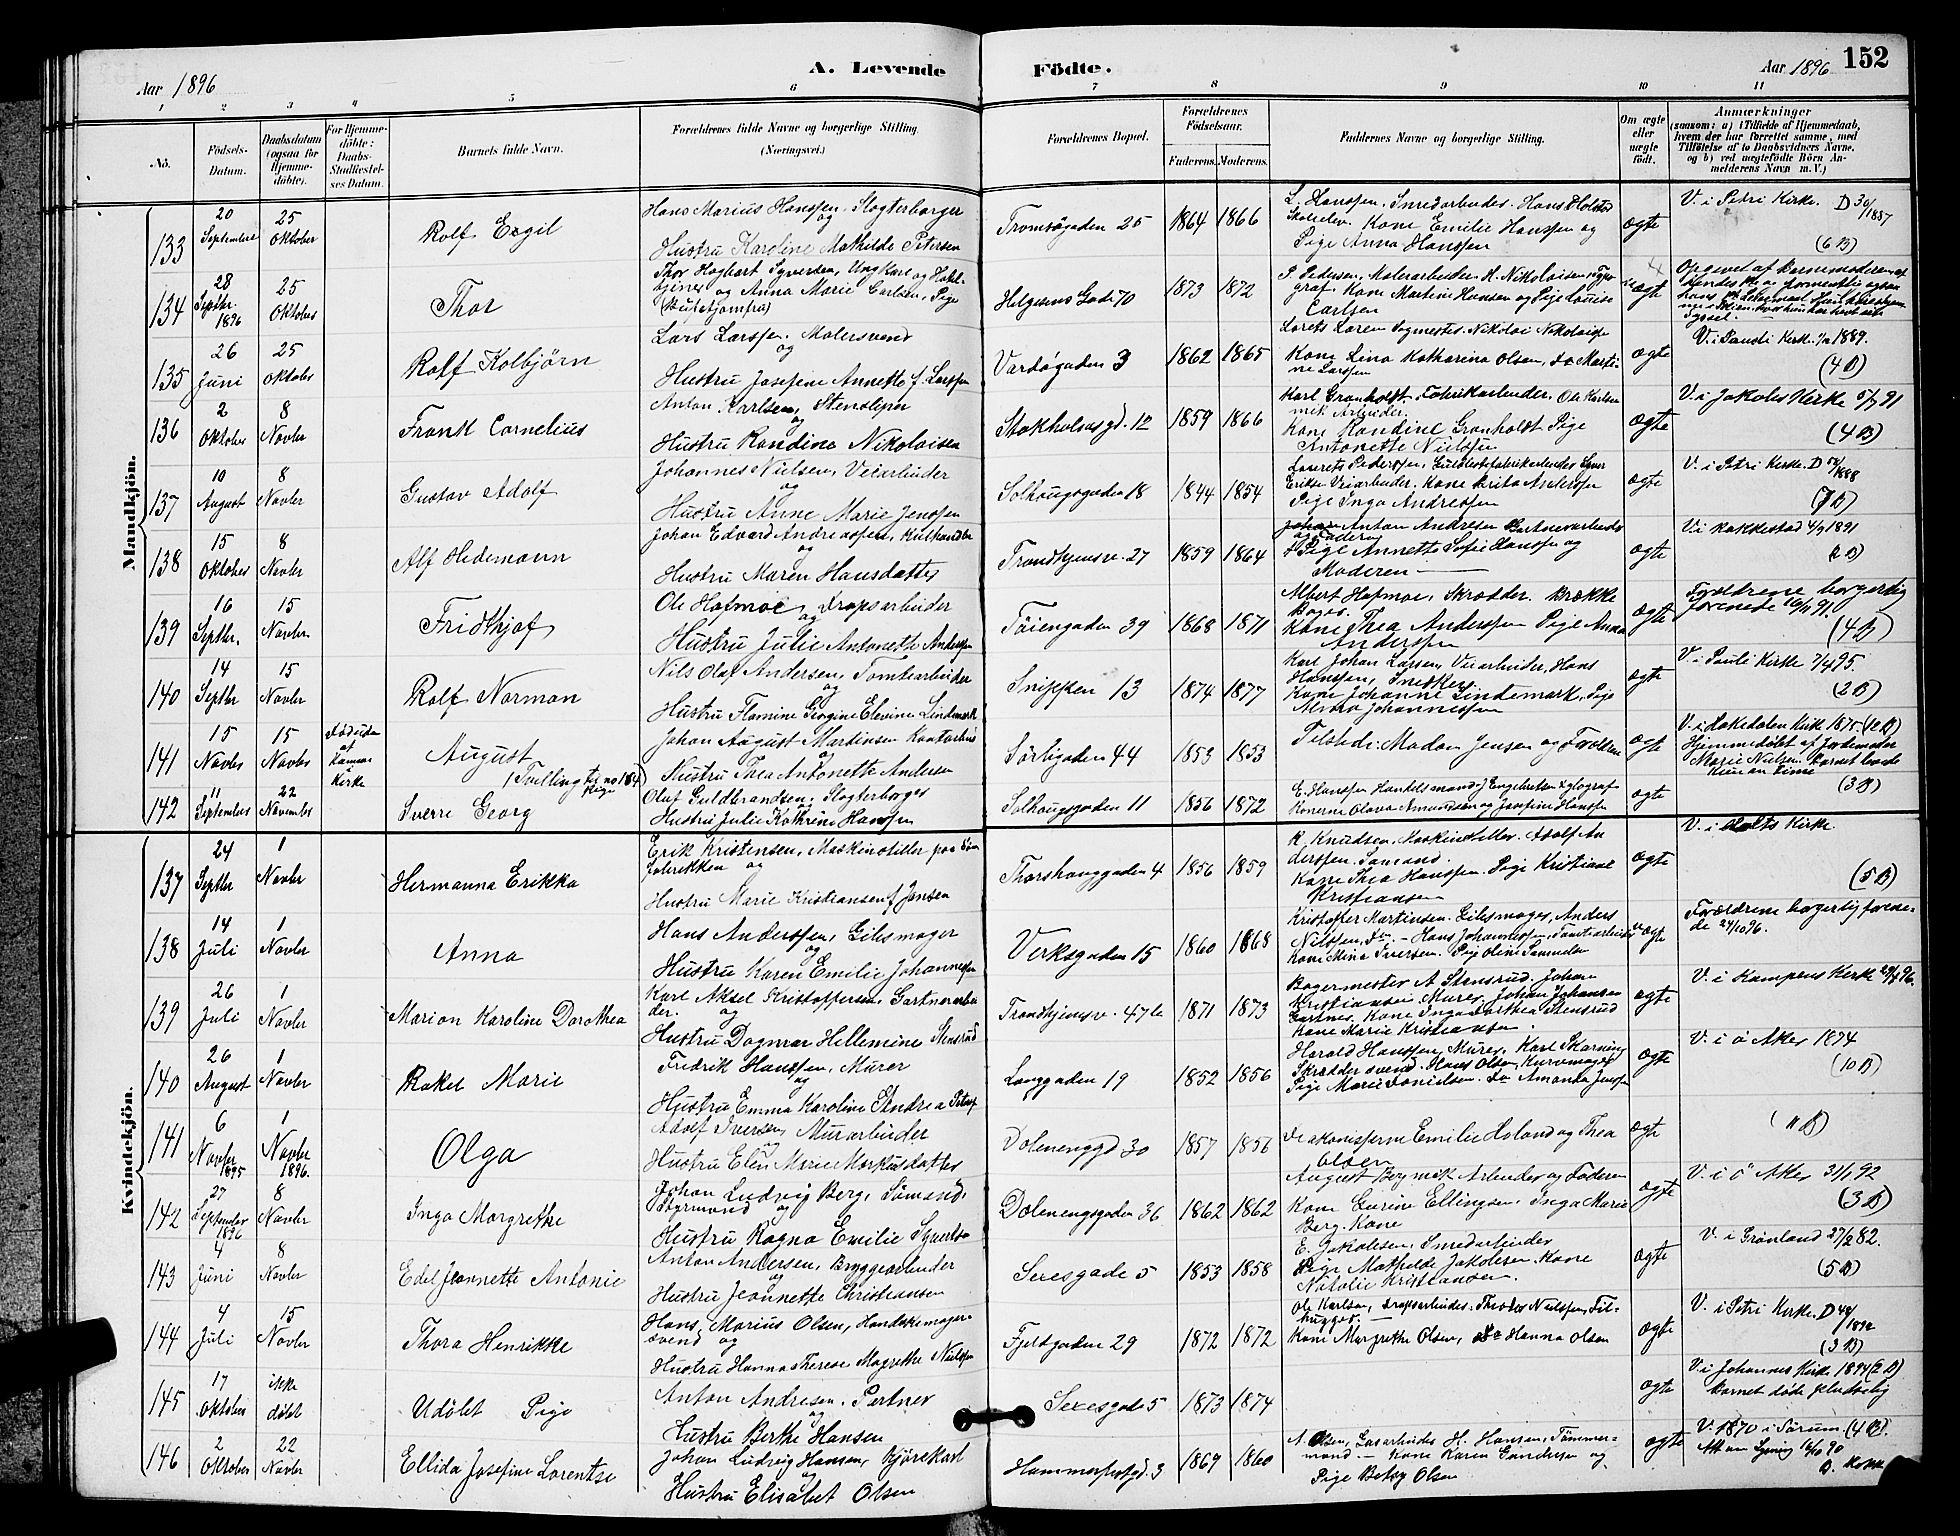 Aar 1896
A. Levende Födte.
Aar 1896 152
1 2 3 4 5 6 7 8 9 10 11
No. Födsels-Datum. Daabsdatum (ogsaa for Hjemme-döbte). For Hjemme-döbte: Daabs-Stadfæstel-ses Datum. Barnets fulde Navn. Forældrenes fulde Navne og borgerlige Stilling. (Næringsvei.) Forældrenes Bopæl. Forældrenes Födselsaar. Faderens. Moderens. Faddernes Navne og borgerlige Stilling. Om ægte eller uægte födt. Anmærkninger (saasom: a) i Tilfælde af Hjemmedaab, hvem der har forrettet samme, med Tilföielse af to Daabsvidners Navne. og b) ved uægtefödte Börn An-melderens Navn m. V.)
Mandkjön.
133 20 September 25 Oktober Rolf Engil Hans Marius Hanssen, Slagterborger og Hustru Karoline Mathilde Petersen Tromsögaden 25 1864 1866 L. Hanssen, Smedarbeider. Hans Holstad Skoleelev. Kone Emilie Hanssen og Pige Anna Hanssen ægte V. i Petri Kirke. D 30/1887 (6 B)
134 28 Septbr. 1896 25 Oktober Thor Thor Hagbart Syversen, Ungkarl og og Anna Marie Carlsen, Pige Helgesens Gade 70 1873 1872 P Pedersen, Malerarbeider. H. Nikolaisen, Typograf. Kone Martine Hansen og Pige Louise Carlsen uægte Opgivet af Barnemoderen
135 26 Juni 25 Oktober Rolf Kolbjørn Lars Larssen, Malersvend og Hustru Josefine Annette f. Larssen Vardøgaden 3 1862 1865 Nikolai Nikolaisen Kone Lina Katharina Olsen, Do Martine Larssen ægte V. i Pauli Kirke 1889. (4 B)
136 2 Oktober 8 Novbr Frank Cornelius Anton Karlsen, Stensliper og Hustru Randine Nikolaisen Stokholmsgd. 12 1859 1866 Karl Granholdt, Fabrikarbeider, Ole Karlsen mek. Arbeider. Kone Randine Granholdt Pige Antonette Nielsen ægte V. i Jakobs Kirke 91 (4 B)
137 10 August 8 Novbr Gustav Adolf Johannes Nielsen, Veiarbeider og Hustru Anne Marie Jenssen Solhougsgaden 18 1844 1854 Eriksen Veiarbeider. Kone Brita Anderssen Pige Inga Andreassen ægte V. i Petri Kirke. D 1888 (7 B)
138 15 Oktober 8 Novbr Alf Hedemann Johan Edvard Andreassen, Kulhandler og Hustru Maren Hansdatter Trondhjemsv. 27 1859 1864 Johan Anton Andresen Gartnerarbeider og Faderen Pige Annette Sofie Hanssen og Moderen ægte V. i Rakkestad 4/9 1891 (2 B)
139 16 Septbr. 15 Novbr. Fridthjof Ole Hofmoe, Drapsarbeider og Hustru Julie Antonette Anderssen Töiengaden 39 1868 1871 Albert Hofmoe, Skrædder. Kone Thea Anderssen Pige Anna Anderssen ægte Forældrene borgerlig forenede 91. (4 B)
140 14 Septbr 15 Novbr Rolf Norman Nils Olaf Andersen, Tomtearbeider og Hustru Flamine Georgine Elevine Lindemark Snippen 13 1874 1877 Karl Johan Larsen, Veiarbeider, Hans Hanssen, Snedker Kone Johanne Lindemark, Pige Alvara Johannessen ægte V. i Pauli Kirke 95. (2 B)
141 15 Novbr 15 Novbr August (Tvilling til no 154 Pige) Johan August Martinsen Kontorbud og Hustru Thea Antonette Andersen Sörligaden 44 1853 1853 Tilstede: Madam Jensen og Forældrene ægte V. i Hakedalen Kirke 1875. (12 B) Hjemmedöbt af Jordemoder Marie Nielsen. Barnet levede kun en Time
142 11 September 22 November Sverre Georg Olaf Guldbrandsen, Slagterborger Hustru Julie Kathrine Hanssen Solhougsgaden 11 1856 1872 E. Hanssen Handelsmand. J Engebretsen Xylograf Konerne Olava Amundsen og Josefine Hanssen ægte (3 B)
Kvindekjön.
137 24 Septbr 1 Novbr Hermanna Erikka Erik Kristensen, Maskinstiller paa og Hustru Marie Kristiansen f Jensen Thorshouggaden 4 1856 1859 K. Knudsen, Maskinstiller. Adolf Anderssen. Sömand. Kone Thea Hanssen. Pige Kristiane Kristiansen ægte V. i Holts Kirke. (5 B)
138 14 Juli 1 Novbr Anna Hans Anderssen, Gibsmager og Hustru Karen Emilie Johannessen Verksgaden 15 1860 1868 Kristoffer Martinsen. Gibsmager, Anders Nilssen, Do. - Hans Johannessen, Tomtearbeider Kone Mina Iversen. Pige Oline uægte Forældrene borgerlig forenede 24/10 96.
139 26 Juli 1 Novbr Marion Karoline Dorothea Karl Aksel Kristoffersen, Gartnerarbeider. og Hustru Dagmar Hellemine Stensrud Trondhjemsv. 47 b 1871 1873 Bagermester A Stensrud, Johan Kristiansen Murer, Johan Johansen Gartner. Kone Inga Dorthea Stensrud Kone Marie Kristiansen. ægte V. i Kampens Kirke 96.
140 26 August 1 Novbr Rakel Marie Fredrik Hanssen, Murer og Hustru Emma Karoline Andrea Langgaden 19 1852 1856 Harald Hanssen, Murer, Karl Skarning Skrædder svend. Hans Olsen, Kurvemager Pige Marie Danielsen. Do Amanda Jenssen ægte V. i ø Aker 1874 (10 B)
141 6 Novbr 1895 1 Novbr 1896. Olga Adolf Iversen, Murarbeider og Hustru Elen Marie Markusdatter Dælenenggd 30 1857 1856 Diakonisserne Emilie og Thea Olsen ægte (11 B)
142 27 September 1896 8 Novbr Inga Margrethe Johan Ludvig Berg, Sömand, og Hustru Ragna Emilie Dælenengsgaden 36 1862 1862 August Berg mek Arbeider og Faderen Kone Gurine Ellingsen, Inga Marie Berg. Kone ægte V. i ö Aker 31/1 92 (3 B)
143 4 Juni 8 Novbr Edel Jeannette Antonie Anton Andersen, Bryggearbeider og Hustru Jeannette Christiansen Seresgade 5 1853 1858 E. Jakobsen, Smedarbeider Pige Mathilde Jakobsen. Kone Natalie Kristiansen. ægte V. i Grønland 82. (5 B)
144 4 Juli 15 Novbr Thora Henrikke Hans Marius Olsen, Handskemagersvend og Hustru Hanna Therese Magrethe Nielssen Fjeldgaden 29 1872 1872 Ole Karlsen, Drapsarbeider. Theodor Nielssen, Tilhugger. Kone Margrethe Olsen, Do Hanna Olsen ægte V. i Petri Kirke. D (3 B)
145 17 Oktober ikke döbt Udöbt Pige Anton Andresen. Partner og Hustru Berthe Hansen Seresgade 5 1873 1874 ægte V. i Johannes Kirke 1894 (2 B) Barnet døde pludselig
146 2 Oktober 22 Novbr Ellida Josefine Lorentze Johan Ludvig Hansen, Kjörekarl Hustru Elisabet Olsen Hammerfestgd. 3 1869 1860 A. Olsen, Gasarbeider H. Hansen, Tömmermand. - Kone Karen Gundersen og Pige Betsy Olsen ægte V. 1870 i Sörum. (4 B).